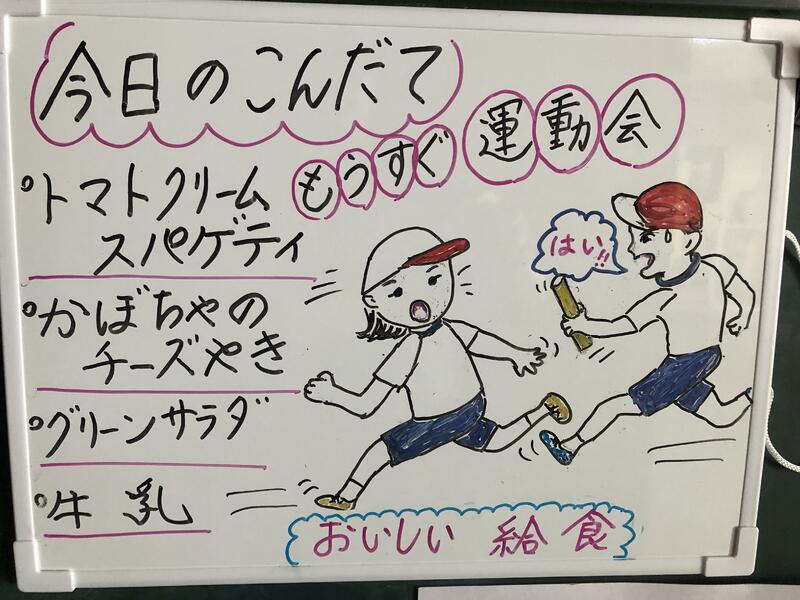 今日のこんだて
もうすぐ運動会
トマトクリーム
スパゲティ
かぼちゃの
チーズやき
グリーンサラダ
牛乳
はい!!
おいしい 給食